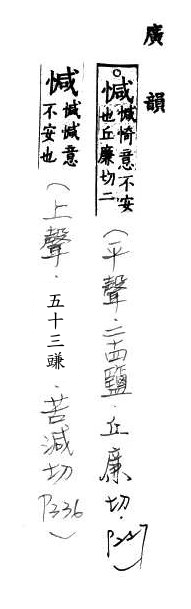 廣韻
意不安
也丘廉切二
(平聲．二十四鹽．丘廉切．P227)
意
不安也
(上聲．五十三豏．苦減切P336)